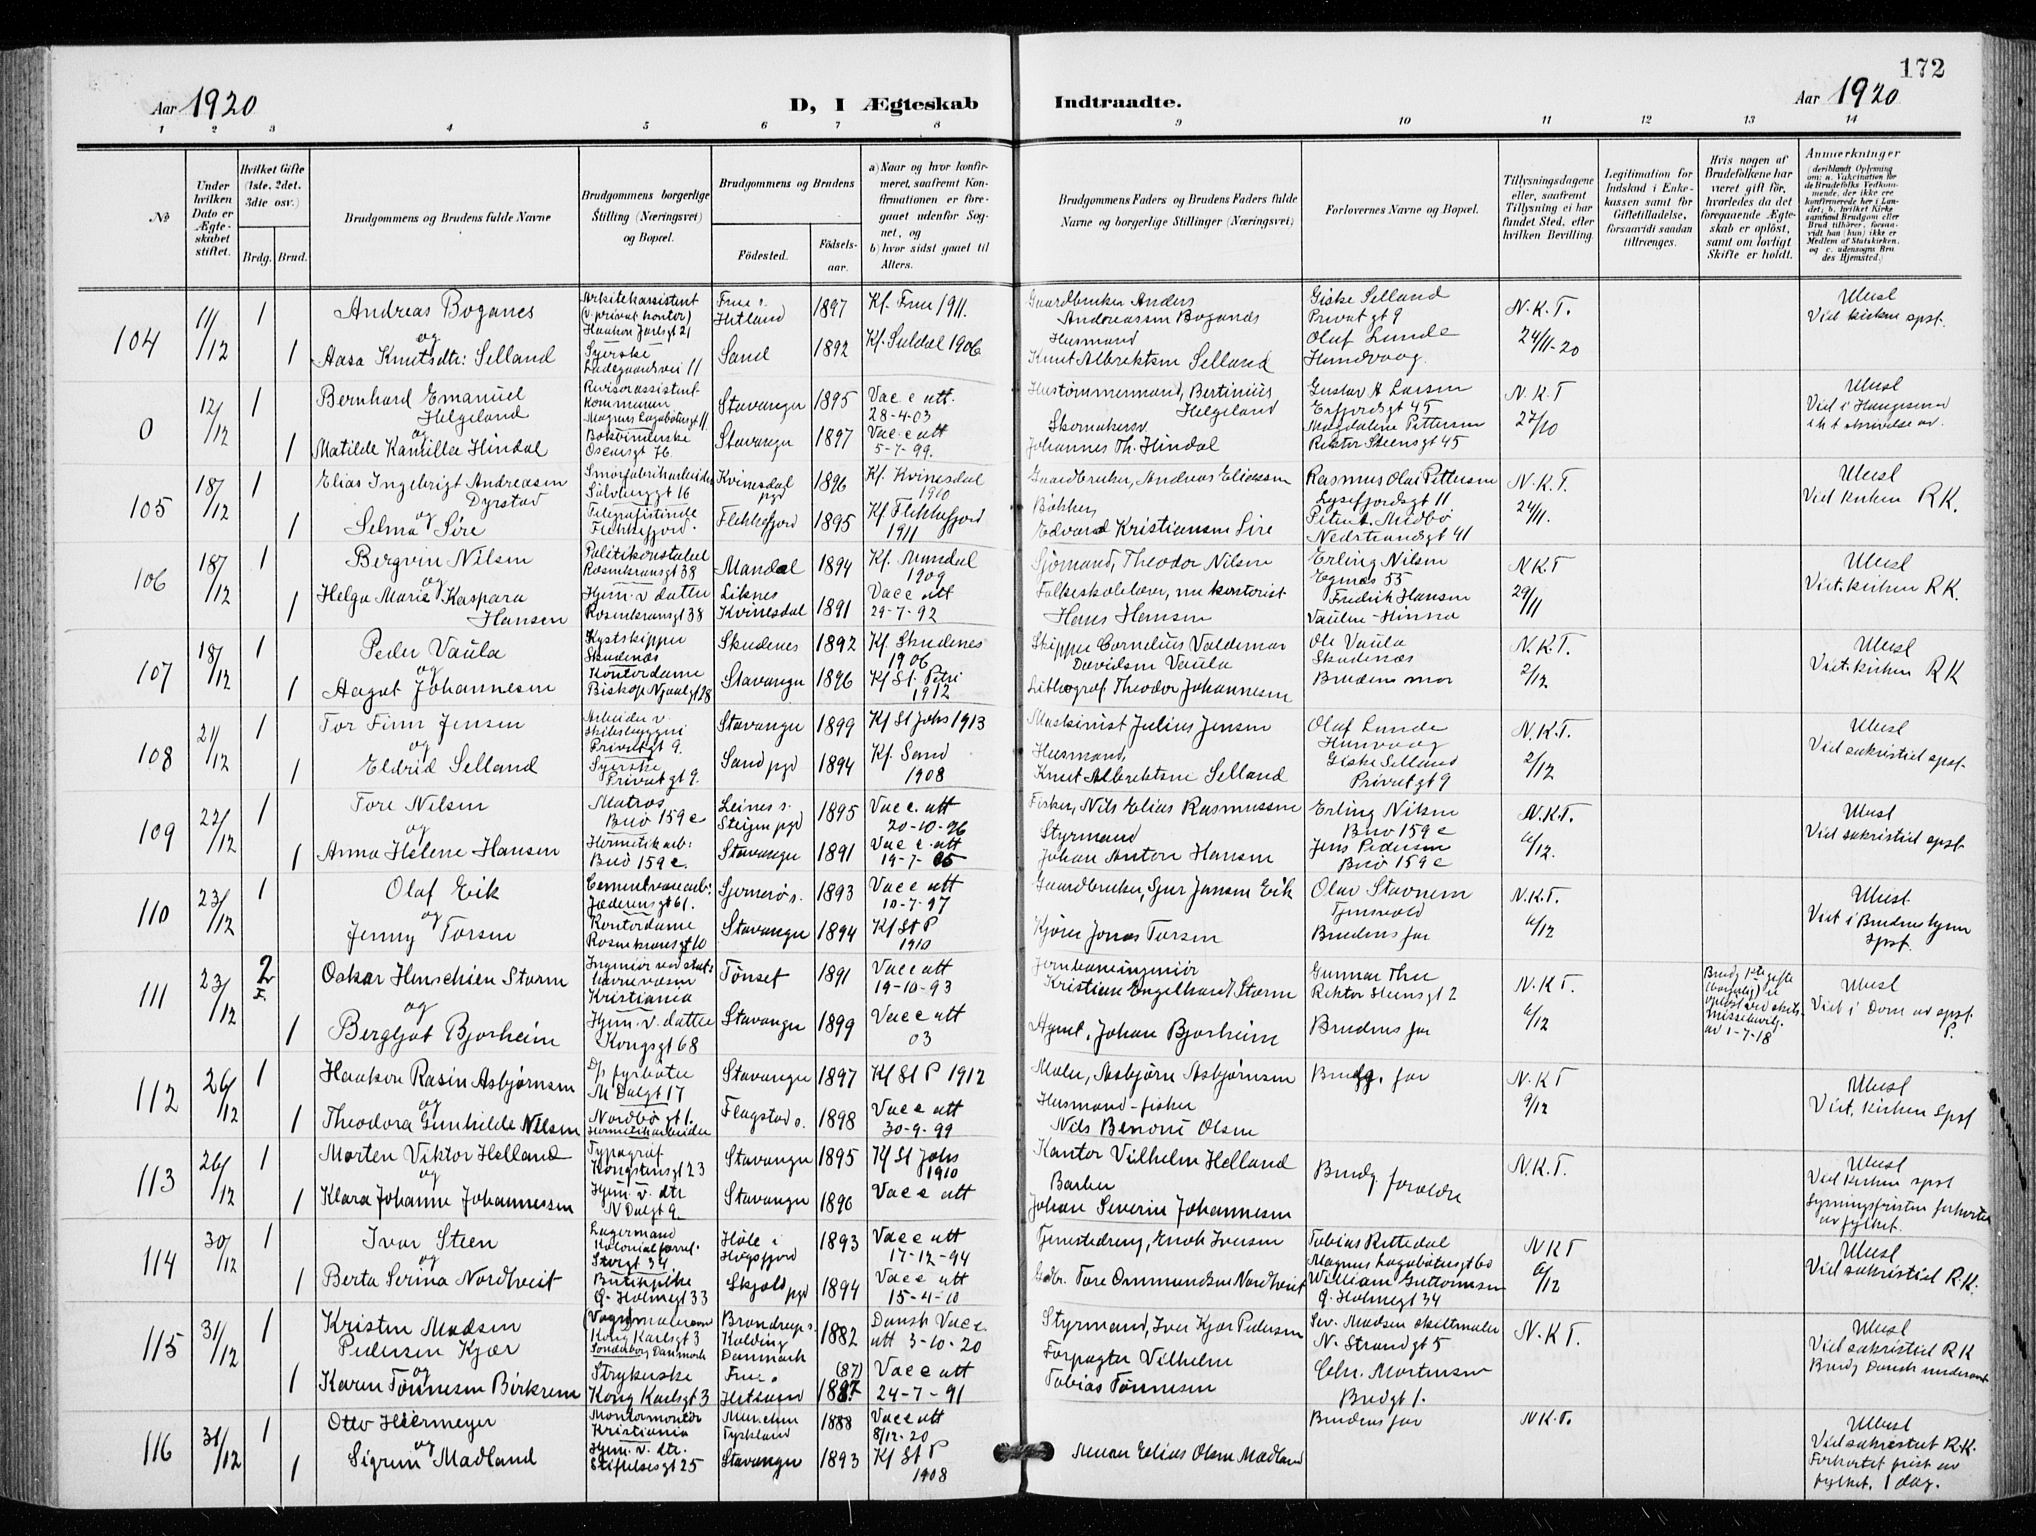 172
Aar 1920
D, I Ægteskab
Indtraadte.
Aar 1920
1 2 3 4 5 6 7 8 9 10 11 12 13 14
No
Under hvilken Dato er Ægteskabet stiftet.
Hvilket Gifte (1ste, 2det, 3die osv.)
Brdg. Brud.
Brudgommens og Brudens fulde Navne
Brudgommens borgerlige Stilling (Næringsvei) og Bopæl.
Brudgommens og Brudens
Födested.
Födselsaar.
a) Naar og hvor konfirmeret, saafremt Konfirmationen er foregaaet udenför Sognet, og
b) hvor sidst gaaet til Alters.
Brudgommens Faders og Brudens Faders fulde Navne og borgerlige Stillinger (Næringsvei)
Forlovernes Navne og Bopæl.
Tillysningsdagene eller, saafremt Tillysning ei har fundet Sted, efter hvilken Bevilling.
Legitimation for Indskud i Enkekassen samt for Giftetilladelse, forsaavidt saadan tiltrænges.
Hvis nogen af Brudefolkene har været gift för, hvorledes da det foregaaende Ægteskab er oplöst, samt om lovligt Skifte er holdt.
Anmerkninger
104 11/12 1 Andreas Boganes
og
1 Aasa Knutsdtr: Selland
Haakon Jarlsgt 21
Syerske
Ladegaardsvei 11
Frue s. Hetland 1897 Kf. Frue 1911.
Sand 1892 Kf. Suldal 1906
Gaardbruker Anders Andreassen Boganes
Husmand Knut Albrektsen Selland
Giske Selland
Privat gt 9
Olaf Lunde
Hundvaag.
N.K.T.
24/11-20
Ulusl
Viet kirken spst.
0 12/12 1 Bernhard Emanuel Helgeland
og
1 Matilde Kamilla Hindal
Revisorassistent
Kommunen
Magnus Lagabøtusgt 11
Stavanger 1895 Vacc att. 28-4-03
Stavanger 1897 Vacc att 5-7-99.
Hustømmermand, Bertinius Helgeland
Skomakersv.
Johannes Th. Hindal
Gustav A Larsen
Erfjordsgt 45
Magdaline Pettersen
Rektor Steensgt 45
N.K.T
27/10
Ulusl
Viet i Haugesund
105 18/12 1 Elias Ingebrigt Andreasen Dyrstad
og
1 Selma Sire
Smørfabrikarbeider
Sølvberggt 16
Telegrafistinde
Flekkefjord.
Kvinesdal pgd 1896 Kf. Kvinesdal 1910
Flekkefjord 1895 Kf. Flekkefjord 1911
Gaardbruker, Andreas Eliassen
Bøkker,
Edvard Kristiansen Sire
Rasmus Olai Pettersen
Lysefjordsgt 11
Peter A. Midbø
Nedstrandsgt 41
N.K.T.
24/11.
Ulusl
Viet kirken R K.
106 18/12 1 Bergvin Nilsen
og
1 Helga Marie Kaspara Hansen
Politikonstabel
Rosenkransgt 38
Hjem. v. datter
Rosenkransgt 38
Mandal 1894 Kf. Mandal 1909
Liknes Kvinesdal 1891 Vacc att 29-7-92
Sjømand, Theodor Nilsen
Folkeskolelærer, nu kontorist
Hans Hansen
Erling Nilsen
Egnæs 55
Fredrik Hansen
Vaulen-Hinna
N.K.T
29/11
Ulusl
Viet. kirken R K.
107 18/12 1 Peder Vaula
og
1 Aagot Johannesen
Kystskipper
Skudenæs
Kontordame
Biskop Njaalsgt 28
Skudenes 1892 Kf. Skudenes 1906
Stavanger 1896 Kf St. Petri 1912
Skipper Cornelius Valdemar Davidsen Vaula
Lithograf Theodor Johannesen
Ole Vaula
Skudenæs
Brudens mor
N.K.T.
2/12
Ulusl
Viet. kirken R K
108 21/12 1 Tor Finn Jensen
og
1 Eldrid Selland
Arbeider v. skibsbyggeri
Privatgt 9.
Syerske
Privatgt 9.
Stavanger 1899 Kf St Johs 1913
Sand pgd 1894 Kf. Sand 1908
Maskinist Julius Jensen
Husmand,
Knut Albrektsen Selland
Olaf Lunde
Hunvaag
Giske Selland
Privatgt 9
N.K.T.
2/12
Ulusl
Viet sakristiet spst.
109 22/12 1 Tore Nilsen
og
1 Anna Helene Hansen
Matros
Buø 159 c
Hermetikarb:
Buø 159 c.
Leines s. Steigen pgd 1895 Vacc. att 20-10-96
Stavanger 1891 Vacc att 19-7-05
Fisker, Nils Elias Rasmussen
Styrmand
Johan Anton Hansen
Erling Nilsen
Buø 159 c
Jens Pedersen
Buø 159 c
N.K.T.
6/12.
Ulusl
Viet sakristiet spst
110 23/12 1 Olaf Eik
og
1 Jenny Torsen
Cementvarearb:
Jæderensgt 61.
Kontordame
Rosenkransgt 10
Sjernerø s. 1893 Vacc att 10-7-97
Stavanger 1894 Kf St P 1910
Gaardbruker, Sjur Jansen Eik
Kjører Jonas Torsen
Olav Stavnem
Tjensvold
Brudens far
N.K.T.
6/12
Ulusl.
Viet i Brudens hjem spst.
111 23/12 2 F. Oskar Henschien Storm
og
1 Bergljot Bjorheim
Ingeniør ved stat: havnevæsen
Kristiania
Hjem. v. datter
Kongsgt 68
Tønset 1891 Vacc att 19-10-93
Stavanger 1899 Vacc att 03
Jernbaneingeniør
Kristian Engelhardt Storm
Agent, Johan Bjorheim
Gunnar Thu
Rektor Steensgt 2
Brudens far
N.K.T.
6/12
Brudg 1ste gifte (borgerlig) er opløst ved skilsmissebevilg. av 1-7-18
Ulusl
Viet i Dom av spst. P.
112 26/12 1 Haakon Rasin Asbjørnsen
og
1 Theodora Gunhilde Nilsen
D/s fyrbøter
M Dalgt 17
Nordbøgt 1.
Hermetikarbeider
Stavanger 1897 Kf St P 1912
Flagstad s. 1898 Vacc att 30-9-99
Maler, Asbjørn Asbjørnsen
Husmand-fisker
Nils Benoni Olsen
Brudg. far
N.K.T
9/12
Ulusl
Viet. kirken spst
113 26/12 1 Morten Viktor Helland
og
1 Klara Johanne Johannessen
Typograf
Kongstensgt 23
Hjem. v. dtr
N Dalgt 9
Stavanger 1895 Kf St Johs 1910
Stavanger 1896 Vacc att
Kantor Vilhelm Helland
Barber
Johan Severin Johannesen
Brudg. foreldre
N.K.T.
Ulusl
Viet kirken spst
Lysningsfristen forkortet av fylket.
114 30/12 1 Ivar Steen
og
1 Berta Serina Nordtveit
Lagermand
Kolonialforret.
Storgt 34
Butikpike
G. Holmegt 33
Høle i Høgsfjord 1893 Vacc att 17-12-94
Skjold pgd 1894 Vacc att 15-4-10
Tjenestedreng, Enok Iversen
Gdbr. Tore Ommundsen Nordtveit
Tobias Rettedal
Magnus Lagabøtusgt 60
William Guttormsen
G. Holmegt 34
N K T
6/12
Ulusl
Viet sakristiet R K.
115 31/12 1 Kristen Madsen Pedersen Kjær
og
1 Karen Tønnesen Birkrem
(Vognmaleren
Kong Karlsgt 3
Sønderborg Danmark
Strykerske
Kong Karlsgt 3
Brøndrup s. Kolding Danmark 1882 Dansk Vacc att 3-10-20
Frue s. Hetland (87) 1887 Vacc att 24-7-91
Styrmand, Iver Kjær Pedersen
Forpagter Vilhelm Tobias Tønnesen
Sev. Madsen skiltmaler
N. Strandgt 5
Chr. Mortensen
Bredgt 1.
N.K T.
Ulusl
Viet sakristiet R K
Brudg Dansk undersaat
116 31/12 1 Otto Heermeyer
og
1 Sigrun Madland
Kristiania
Hjem. v. dtr.
Stiftelsesgt 25
München Tyskland 1888 Vacc att 8/12-20
Stavanger 1893 Kf St P 1908
Elias Olsen Madland
Brudens far
N K T.
Ulusl
Viet sakristiet R K.
Forkortet frist av fylket. 1 dag.